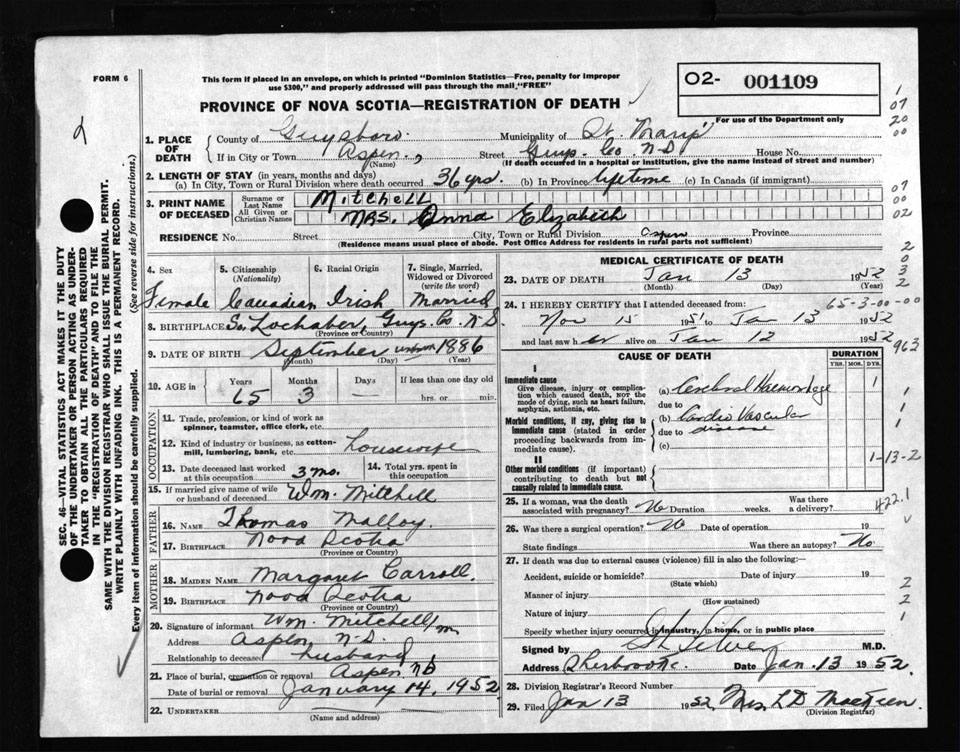 FORM 6
This form if placed in an envelope, on which is printed "Dominion Statistics—Free, penalty for improper
use $300," and properly addressed will pass through the mail "FREE"
PROVINCE OF NOVA SCOTIA—REGISTRATION OF DEATH
O2- 001109
For use of the Department only
1. PLACE OF DEATH
County of Guysboro. Municipality of St. Mary's
If in City or Town Aspen, Street Guys. Co N-S House No.
(Name) (If death occurred in a hospital or institution, give the name instead of street and number)
2. LENGTH OF STAY (in years, months and days)
(a) In City, Town or Rural Division where death occurred 36 yrs. (b) In Province lifetime (c) In Canada (if immigrant)
3. PRINT NAME OF DECEASED
Surname or Last Name Mitchell
All Given or Christian Names MRS. Anna Elizabeth
RESIDENCE No. Street City, Town or Rural Division Aspen Province
(Residence means usual place of abode. Post Office Address for residents in rural parts not sufficient)
4. Sex
Female
5. Citizenship (Nationality)
Canadian
6. Racial Origin
Irish
7. Single, Married, Widowed or Divorced (write the word)
Married
8. BIRTHPLACE So. Lochaber, Guys. Co. N S.
(Province or Country)
9. DATE OF BIRTH September unknown 1886
(Month) (Day) (Year)
10. AGE in Years Months Days If less than one day old
65 3 — hrs. or min.
OCCUPATION
11. Trade, profession, or kind of work as spinner, teamster, office clerk, etc.
12. Kind of industry or business, as cotton-mill, lumbering, bank, etc. housewife
13. Date deceased last worked at this occupation 3 mo.
14. Total yrs. spent in this occupation
15. If married give name of wife or husband of deceased Wm. Mitchell
FATHER
16. NAME Thomas Malloy.
17. BIRTHPLACE Nova Scotia
(Province or Country)
MOTHER
18. MAIDEN NAME Margaret Carroll.
19. BIRTHPLACE Nova Scotia
(Province or Country)
20. Signature of informant Wm. Mitchell/m
Address Aspen, N-S.
Relationship to deceased husband
21. Place of burial, cremation or removal Aspen NS
Date of burial or removal January 14, 1952
22. UNDERTAKER
(Name and address)
MEDICAL CERTIFICATE OF DEATH
23. DATE OF DEATH Jan 13 1952
(Month) (Day) (Year)
65-3-00-00
24. I HEREBY CERTIFY that I attended deceased from:
Nov 15 1951 to Jan 13 1952
and last saw her alive on Jan 12 1952
963
CAUSE OF DEATH
DURATION
YRS. MOS. DYS.
I
Immediate cause
Give disease, injury or complication which caused death, NOT the mode of dying, such as heart failure, asphyxia, asthenia, etc.
(a) Cerebral Haemorrhage 1
due to
Morbid conditions, if any, giving rise to immediate cause (stated in order proceeding backwards from immediate cause)
(b) Cardio Vascular
due to disease
(c)
1-13-2
II
Other morbid conditions (if important) contributing to death but not causally related to immediate cause.
25. If a woman, was the death associated with pregnancy? No Duration weeks. Was there a delivery?
422.1
26. Was there a surgical operation? No Date of operation 19
State findings Was there an autopsy? No
27. If death was due to external causes (violence) fill in also the following:
Accident, suicide or homicide? Date of injury 19
(State which)
Manner of injury
(How sustained)
Nature of injury
Specify whether injury occurred in industry, in home, or in public place
Signed by M.D.
Address Sherbrooke. Date Jan. 13 1952.
28. Division Registrar's Record Number
29. Filed Jan 13 1952, Mrs. L D
(Division Registrar)
SEC. 46—VITAL STATISTICS ACT MAKES IT THE DUTY
OF THE UNDERTAKER OR PERSON ACTING AS UNDERTAKER TO OBTAIN ALL THE PARTICULARS REQUIRED
IN THE "REGISTRATION OF DEATH" AND TO FILE THE
SAME WITH THE DIVISION REGISTRAR WHO SHALL ISSUE THE BURIAL PERMIT.
WRITE PLAINLY WITH UNFADING INK. THIS IS A PERMANENT RECORD.
Every item of information should be carefully supplied. (See reverse side for instructions.)